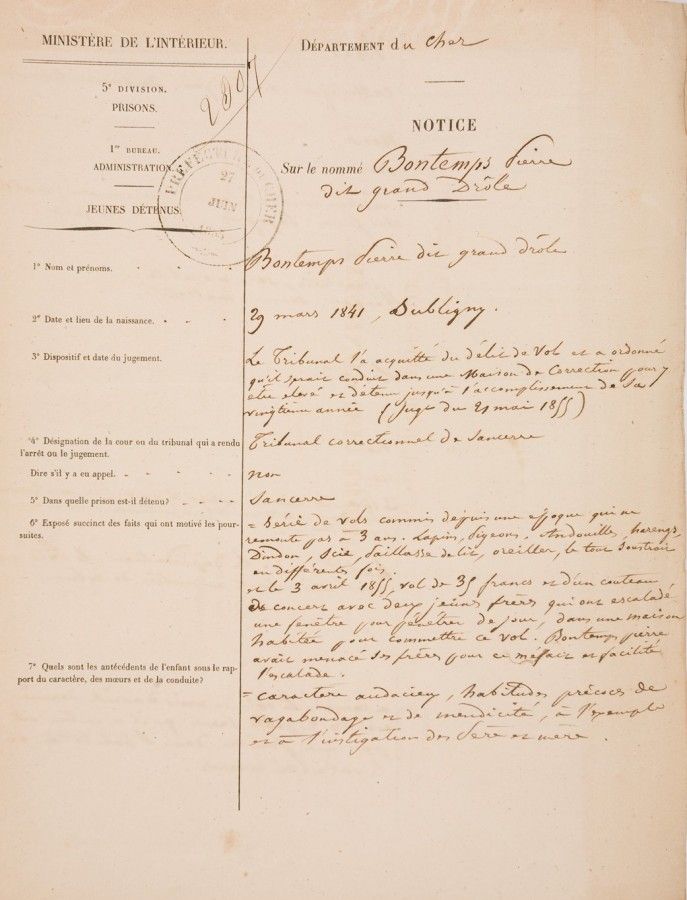 MINISTÈRE DE L'INTÉRIEUR.
5e DIVISION.
PRISONS.
1er BUREAU.
ADMINISTRATION
JEUNES DÉTENUS.
2907
PRÉFECTURE DU CHER
27
JUIN
DÉPARTEMENT du Cher
NOTICE
Sur le nommé Bontemps Pierre
dit grand Drôle
1° Nom et prénoms.
Bontemps Pierre dit grand drôle
2° Date et lieu de la naissance.
29 mars 1841, Subligny.
3° Dispositif et date du jugement.
Le Tribunal l'a acquitté du délit de Vol et a ordonné
qu'il serait conduit dans une Maison de Correction pour y
être élevé et détenu jusqu'à l'accomplissement de sa
vingtième année (Jugt du 21 mai 1855)
4° Désignation de la cour ou du tribunal qui a rendu
l'arrêt ou le jugement.
Tribunal correctionnel de Sancerre
Dire s'il y a eu appel.
non
5° Dans quelle prison est-il détenu?
Sancerre
6° Exposé succinct des faits qui ont motivé les pour-
suites.
= Série de vols commis depuis une époque qui ne
remonte pas à 3 ans. Lapins, Pigeons, Andouilles, harengs,
Dindon, Scie, Paillasse de lit, oreiller, le tout soustrait
en différentes fois.
et le 3 avril 1855, vol de 35 francs et d'un couteau,
de concert avec deux jeunes frères qui ont escaladé
une fenêtre pour pénétrer de jour, dans une maison
habitée pour commettre ce vol. Bontemps pierre
avait menacé ses frères pour ce méfait et facilité
l'escalade.
7° Quels sont les antécédents de l'enfant sous le rap-
port du caractère, des mœurs et de la conduite?
= caractère audacieux, habitudes précoces de
vagabondage et de mendicité, à l'exemple
et à l'instigation des Père et mère.